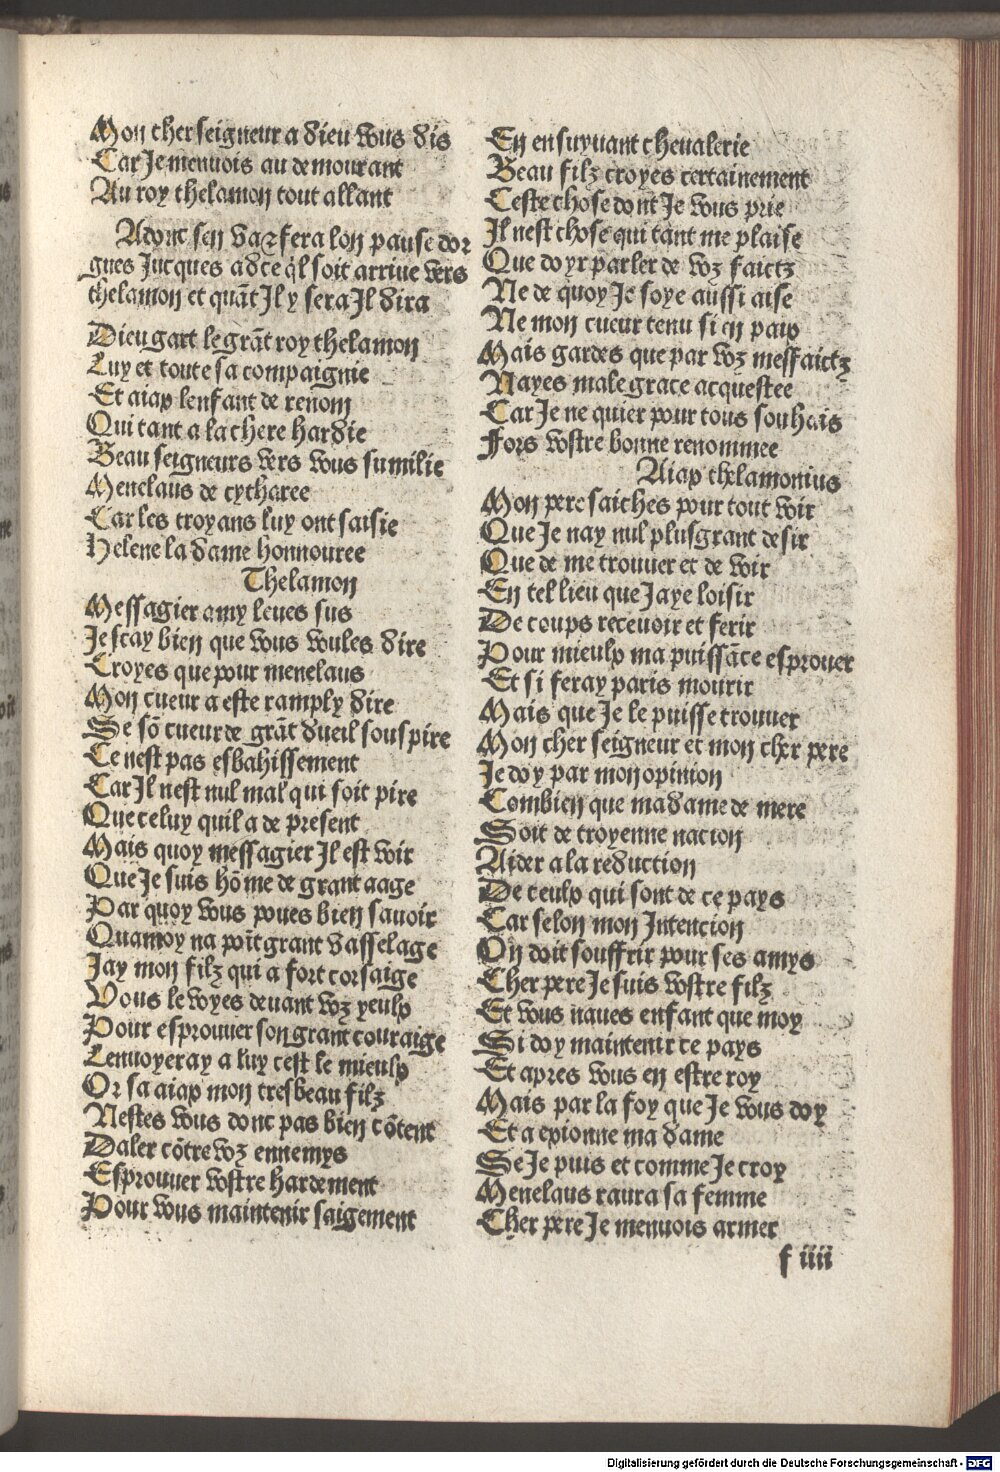 Mon cher seigneur a dieu vous dis
Car Je menuois au demourant
Au roy thelamon tout allant
Adonc sen va & fera lon pause dor
gues Jucques a dce ql̃ soit arriue vers
thelamon et quãt Jl y sera Jl dira
Dieu gart le grãt roy thelamon
Luy et toute sa compaignie
Et aiax lenfant de renom
Qui tant a la chere hardie
Beau seigneurs vers vous sumilie
Menelaus de cytharee
Car les troyans luy ont saisie
Helene la dame honnouree
Thelamon
Messagier amy leues sus
Je scay bien que vous voules dire
Croyes que pour menelaus
Mon cueur a este ramply dire
Se sõ cueur de grãt dueil souspire
Ce nest pas esbahissement
Car Jl nest nul mal qui soit pire
Que celuy quil a de present
Mais quoy messagier Jl est voir
Que Je suis hõme de grant aage
Par quoy vous poues bien sauoir
Quamoy na poĩt grant vasselage
Jay mon filz qui a fort corsaige
Vous le voyes deuant voz yeulx
Pour esprouuer son grant couraige
Lenuoyeray a luy cest le mieulx
Or sa aiax mon tresbeau filz
Nestes vous donc pas bien cõtent
Daler cõtre voz ennemys
Esprouuer vostre hardement
Pour vous maintenir saigement
En ensuyuant cheualerie
Beau filz croyes certainement
Ceste chose dont Je vous prie
Jl nest chose qui tant me plaise
Que doyr parler de voz faictz
Ne de quoy Je soye aussi aise
Ne mon cueur tenu si en paix
Mais gardes que par voz meffaictz
Nayes male grace acquestee
Car Je ne quier pour tous souhais
Fors vostre bonne renommee
Aiax thelamonius
Mon pere saiches pour tout voir
Que Je nay nul plusgrant desir
Que de me trouuer et de voir
En tel lieu que Jaye loisir
De coups receuoir et ferir
Pour mieulx ma puissãce esprouer
Et si feray paris mourir
Mais que Je le puisse trouuer
Mon cher seigneur et mon cher pere
Je doy par mon opinion
Combien que madame de mere
Soit de troyenne nacion
Aider a la reduction
De ceulx qui sont de ce pays
Car selon mon Jntencion
On doit souffrir pour ses amys
Cher pere Je suis vostre filz
Et vous naues enfant que moy
Si doy maintenir ce pays
Et apres vous en estre roy
Mais par la foy que Je vous doy
Et a exionne ma dame
Se Je puis et comme Je croy
Menelaus raura sa femme
Cher pere Je menuois armer
f iiii
Digitalisierung gefördert durch die Deutsche Forschungsgemeinschaft - DFG